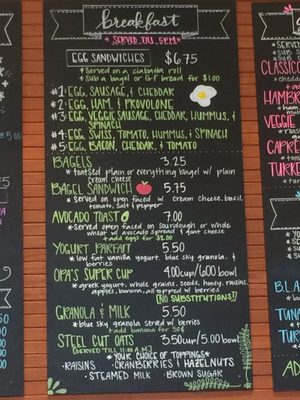 breakfast
SERVED TILL 5PM
EGG SANDWICHES $6.75
*Served on a ciabatta roll
*Sub a bagel or G.F bread for $1.00
#1: EGG, SAUSAGE, & CHEDDAR
#2: EGG, HAM, & PROVOLONE
#3: EGG, VEGGIE SAUSAGE, CHEDDAR, HUMMUS, &
SPINACH
#4: EGG, SWISS, TOMATO, HUMMUS, & SPINACH
#5: EGG, BACON, CHEDDAR, & TOMATO
BAGELS 3.25
*toasted plain or everything bagel w/ plain
cream cheese
BAGEL SANDWICH 5.75
*served on open faced w/ cream cheese, basil,
tomato, salt & pepper
AVOCADO TOAST 7.00
*served open faced on sourdough or whole
wheat w/ avocado spread & goat cheese
*add eggs for $2.00
YOGURT PARFAIT 5.50
*low fat vanilla yogurt, blue sky granola, &
berries
OPA'S SUPER CUP 4.00 CUP/6.00 BOWL
*greek yogurt, whole grains, seeds, honey, raisins,
apples, banana, all topped w/ berries
(NO SUBSTITUTIONS!!)
GRANOLA & MILK 5.50
*blue sky granola served w/ berries
*add banana for 50¢
STEEL CUT OATS 3.50 CUP/5.00 BOWL
(SERVED TILL 11:00 AM)
*YOUR CHOICE OF TOPPINGS*
·RAISINS ·CRANBERRIES & HAZELNUTS
·STEAMED MILK ·BROWN SUGAR
CLASSIC
HAMBR
VEGGIE
CAPRE
TURKE
BLA
TUNA
TURK
ADD